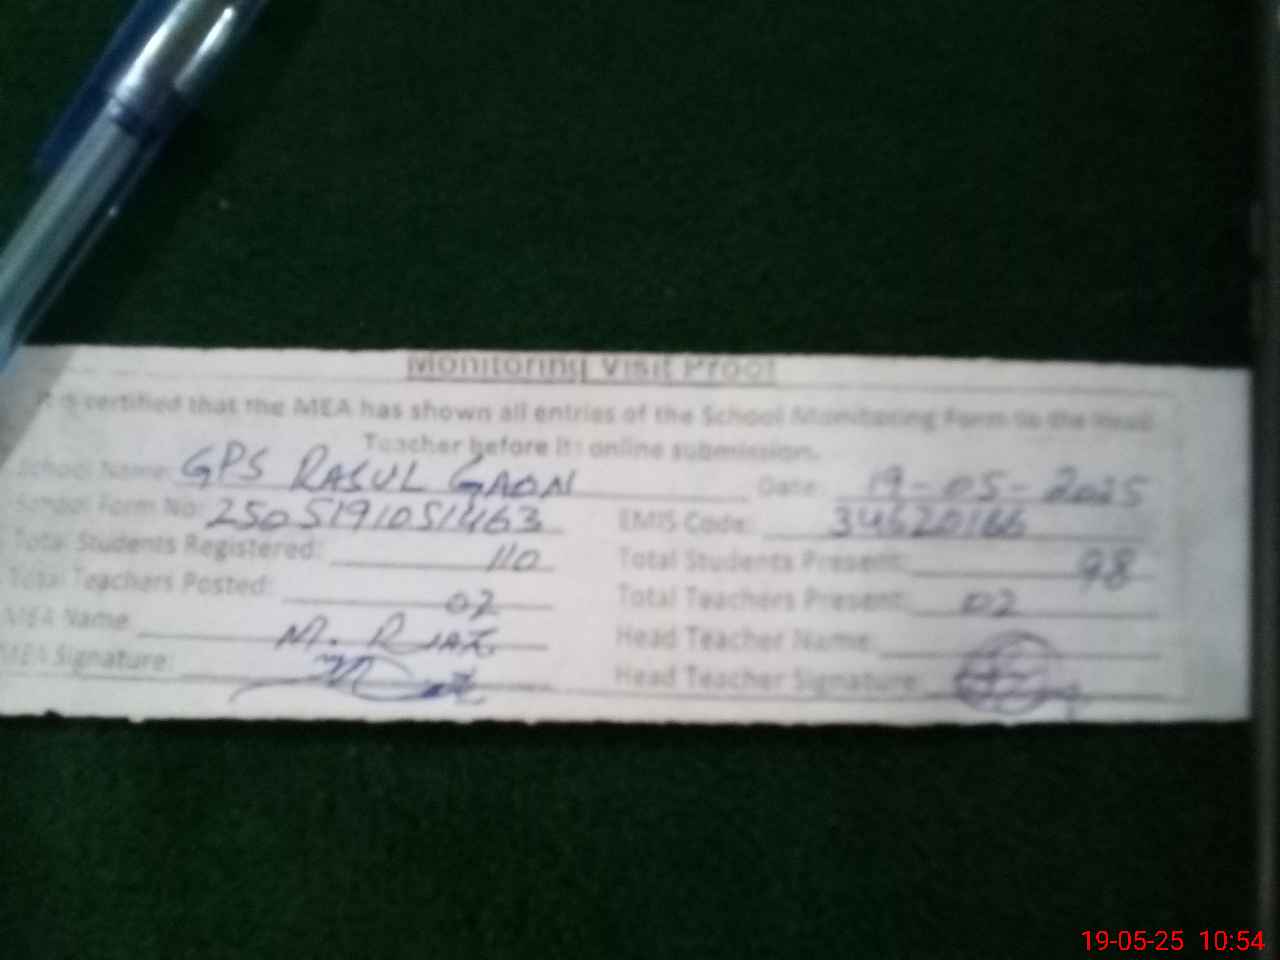 Monitoring Visit Proof
It is certified that the MEA has shown all entries of the School Monitoring Form to the Head
Teacher before its online submission.
School Name: GPS RASUL GAON Date: 19-05-2025
School Form No: 2505191051463 EMIS Code: 34620166
Total Students Registered: 110 Total Students Present: 98
Total Teachers Posted: 02 Total Teachers Present: 02
MEA Name: M. RIAZ Head Teacher Name:
MEA Signature: Head Teacher Signature:
19-05-25 10:54